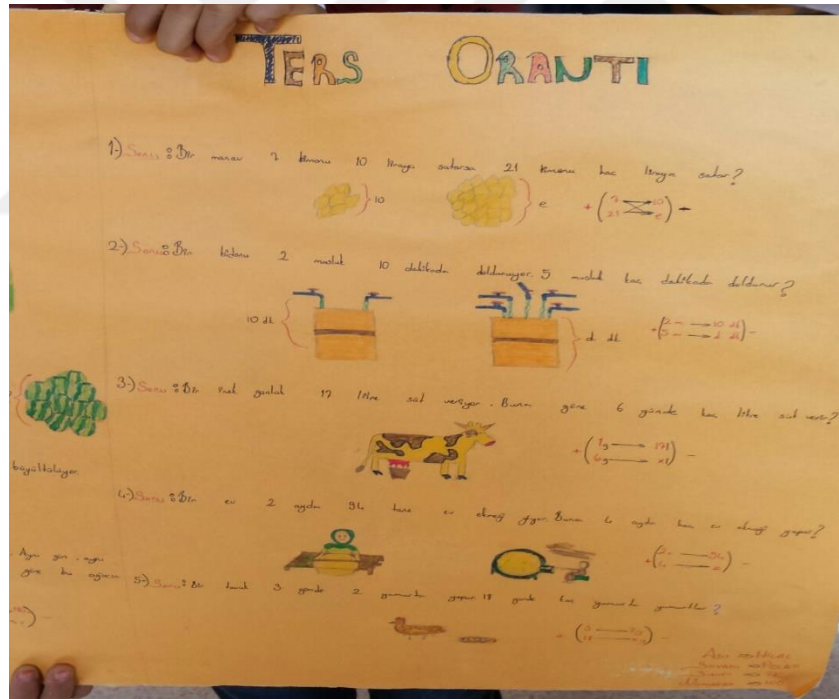 TERS ORANTI
1-) Soru: Bir manav 7 limonu 10 liraya satarsa 21 limonu kaç liraya satar?
10
e
+ ( 7 10 ) -
21 e
2-) Soru: Bir bidonu 2 musluk 10 dakikada dolduruyor. 5 musluk kaç dakikada doldurur?
10 dk
d dk
+ ( 2 10 dk ) -
5 d dk
3-) Soru: Bir inek günlük 17 litre süt veriyor. Buna göre 6 günde kaç litre süt verir?
+ ( 1g 17l ) -
6g xl
büyültülüyor.
4-) Soru: Bir ev 2 ayda 94 tane ev ekmeği yiyor. Buna 4 ayda kaç ev ekmeği yapar?
Aynı gün, aynı
göre bu ağacın
5-) Soru: Bir tavuk 3 günde 2 yumurta yapar 18 günde kaç yumurta yumurtlar?